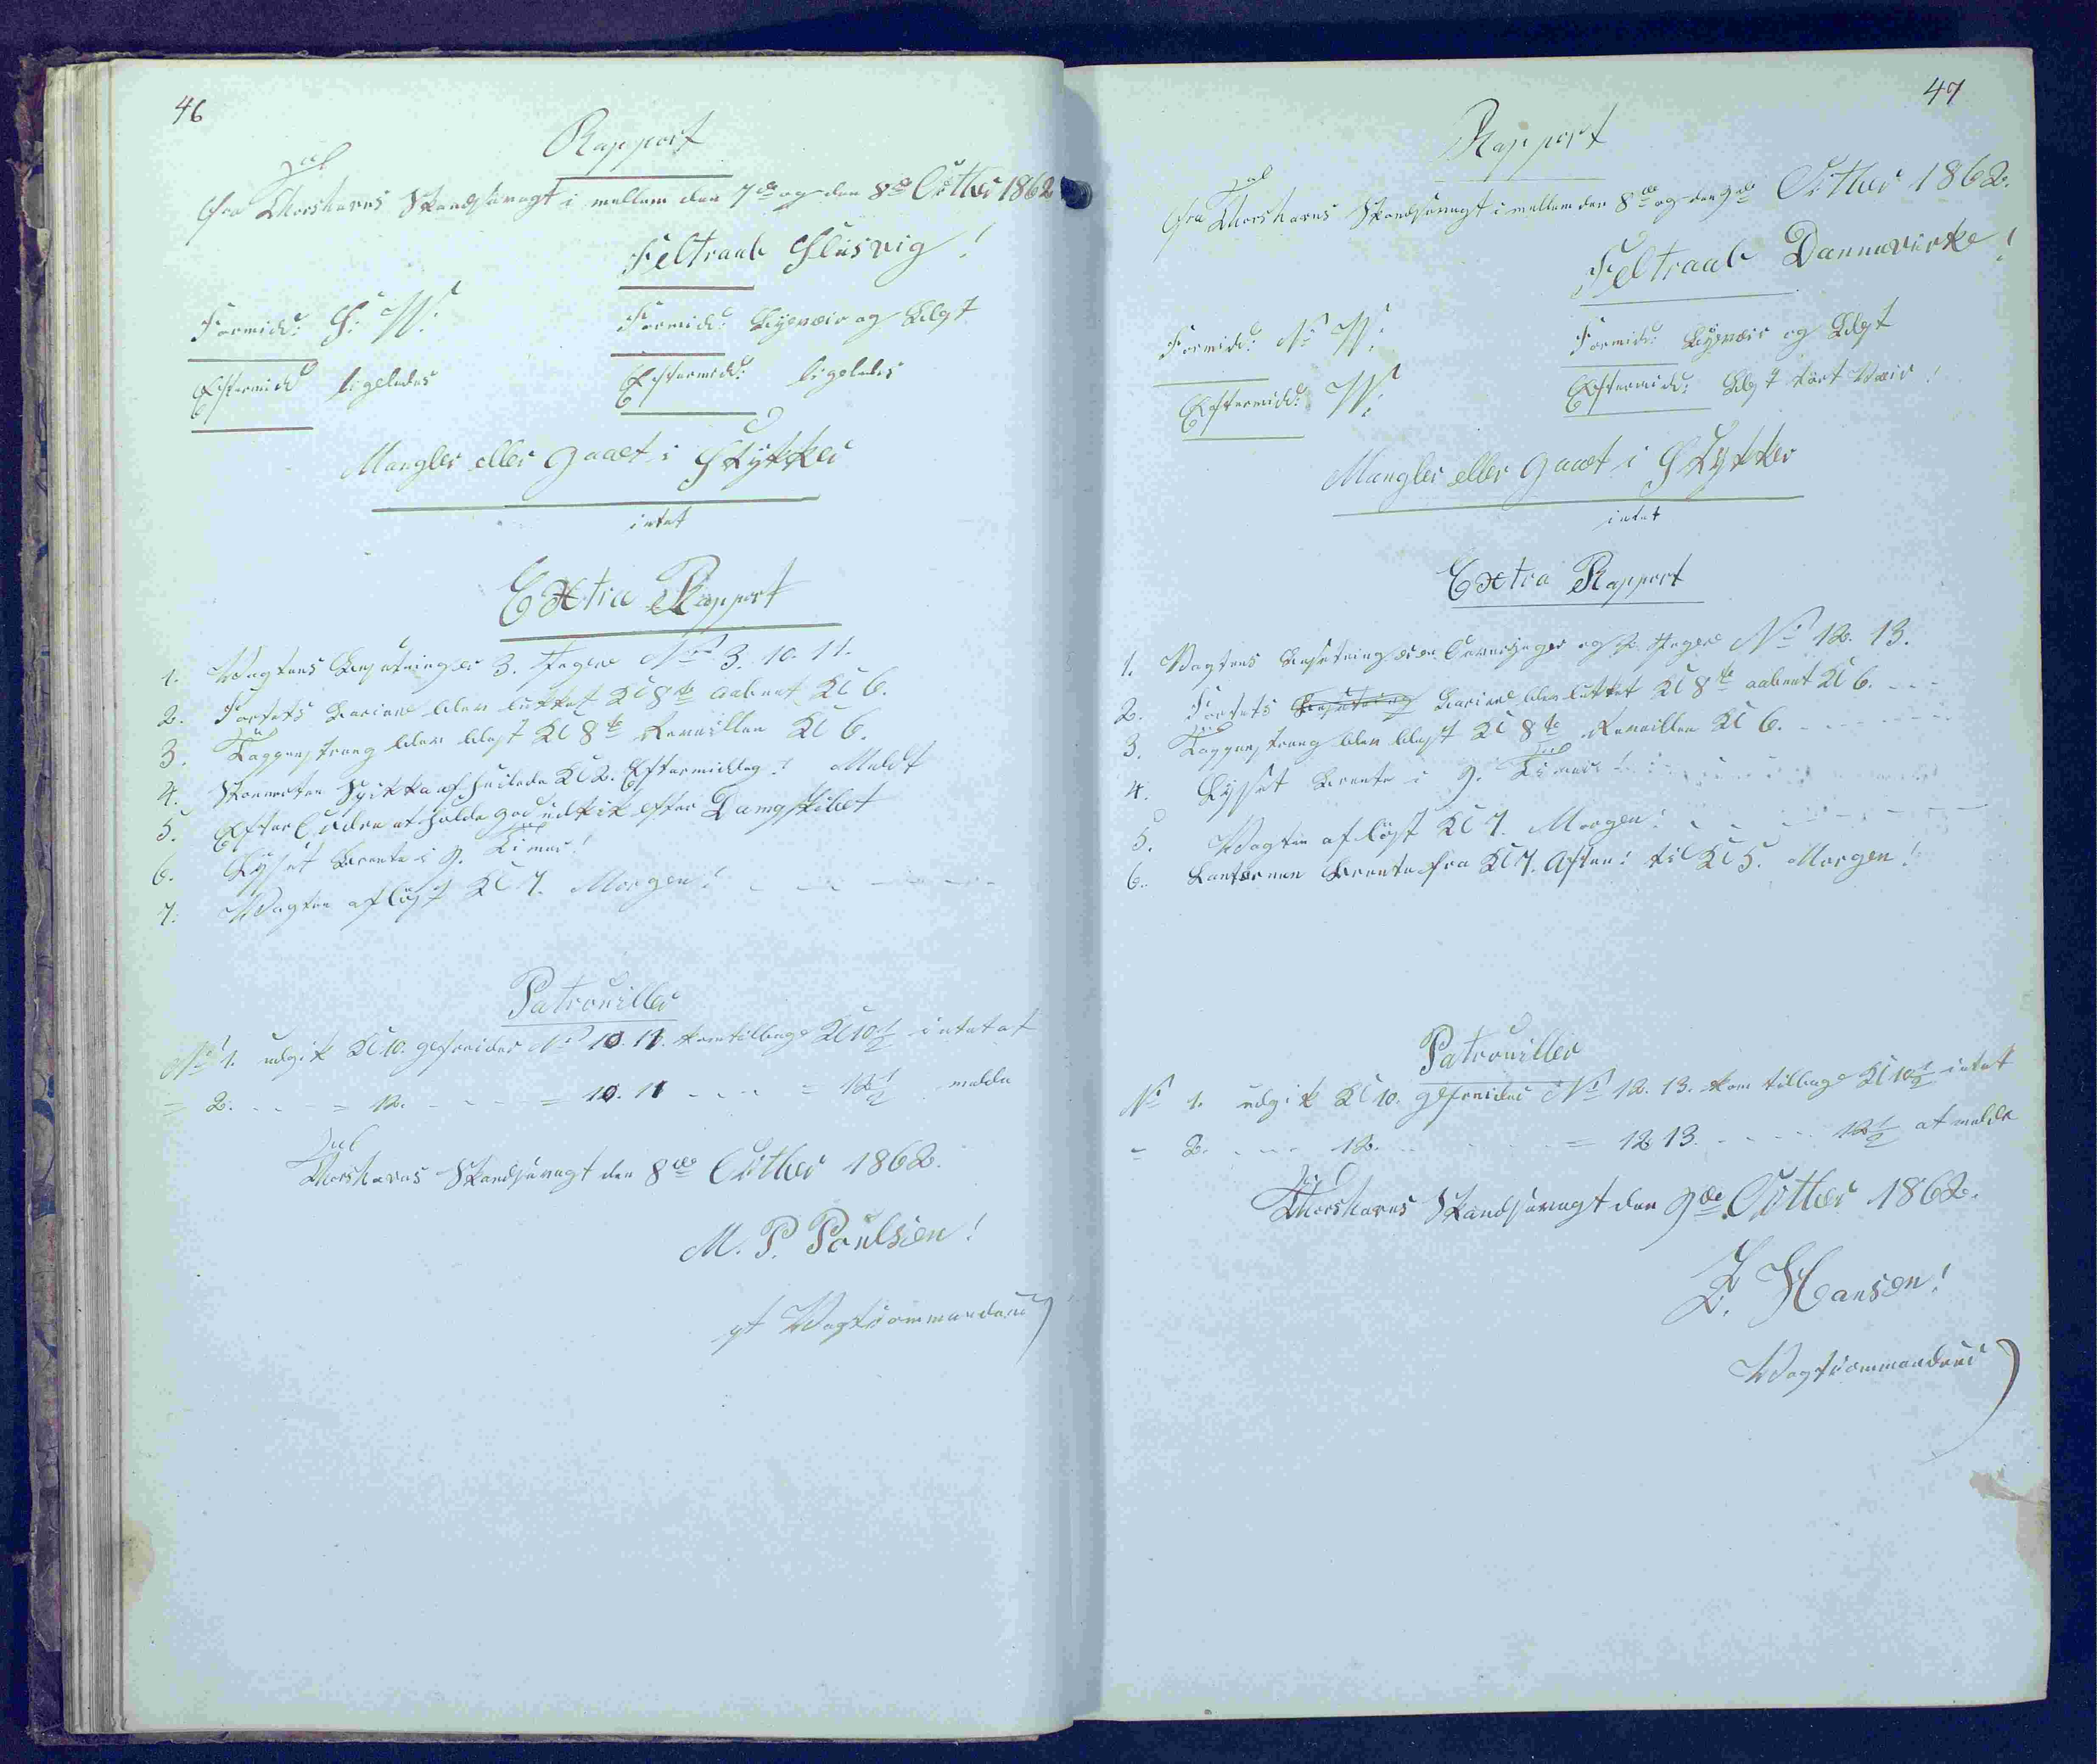 46
Rapport
fra Thorshavns Skandsevagt i mellem den 7de og den 8de Octber 1862
Feltraab Slusvig!
Formidd: S. W. Formidd: Bygeveir og Blæst
Eftermidd ligeledes Eftermidd: ligeledes
Mangler eller gaaet i Stykker
intet
Extra Rapport
1. Vagtens Besætning er 3. Jægere No 3. 10. 11.
2. Fortets Bariere blev lukket Kl 8te aabnet Kl 6.
3. Tappenstreng blev blæst Kl 8te Reveillen Kl 6.
4. Skonnerten af Seilede Kl 2. Eftermiddag! Meldt
5. Efter Ordre at holde god udkik efter Dampskibet
6. Lyset Brænte i 9. Timer!
7. Vagten afløst Kl 7. Morgen!
Patrouiller
No 1. udgik Kl 10. gefreider No 10. 11. kom tilbage Kl 10 1/2 intet at
= 2. - - - = 12. - - - = 10. 11 - - - = 12 1/2 melde
Thorshavns Skandsevagt den 8de Octber 1862.
M. P. Poulsen!
gt Vagtcommandeur
47
Rapport
fra Thorshavns Skandsevagt i mellem den 8de og den 9de Octber 1862.
Feltraab Dannevirke!
Formidd: N. W. Formidd: Bygeveir og Blæst
Eftermidd: W. Eftermidd: Blæst tørt Veir!
Mangler eller gaaet i Stykker
intet
Extra Rapport
1. Vagtens Besætning er en Overjæger og 2. Jægere No 12. 13.
2. Fortets Besætning Bariere blev lukket Kl 8te aabnet Kl 6. - - -
3. Tappenstreng blev blæst Kl 8te Reveillen Kl 6. - - -
4. Lysset Brænte i 9. Timer!
5. Vagten afløst Kl 7. Morgen!
6. Lanternen Brænte fra Kl 7. Aften! til Kl 5. Morgen!
Patrouiller
No 1. udgik Kl 10. gefreider No 12. 13. kom tilbage Kl 10 1/2 intet
= 2. - - - 12. - - - = 12 13. - - - 12 1/2 at melde
Thorshavns Skandsevagt den 9de Octber 1862.
Hansen!
Vagtcommandeur